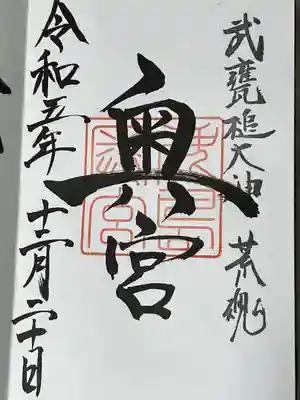 武甕槌大神 荒魂
奥宮
令和五年十二月二十日